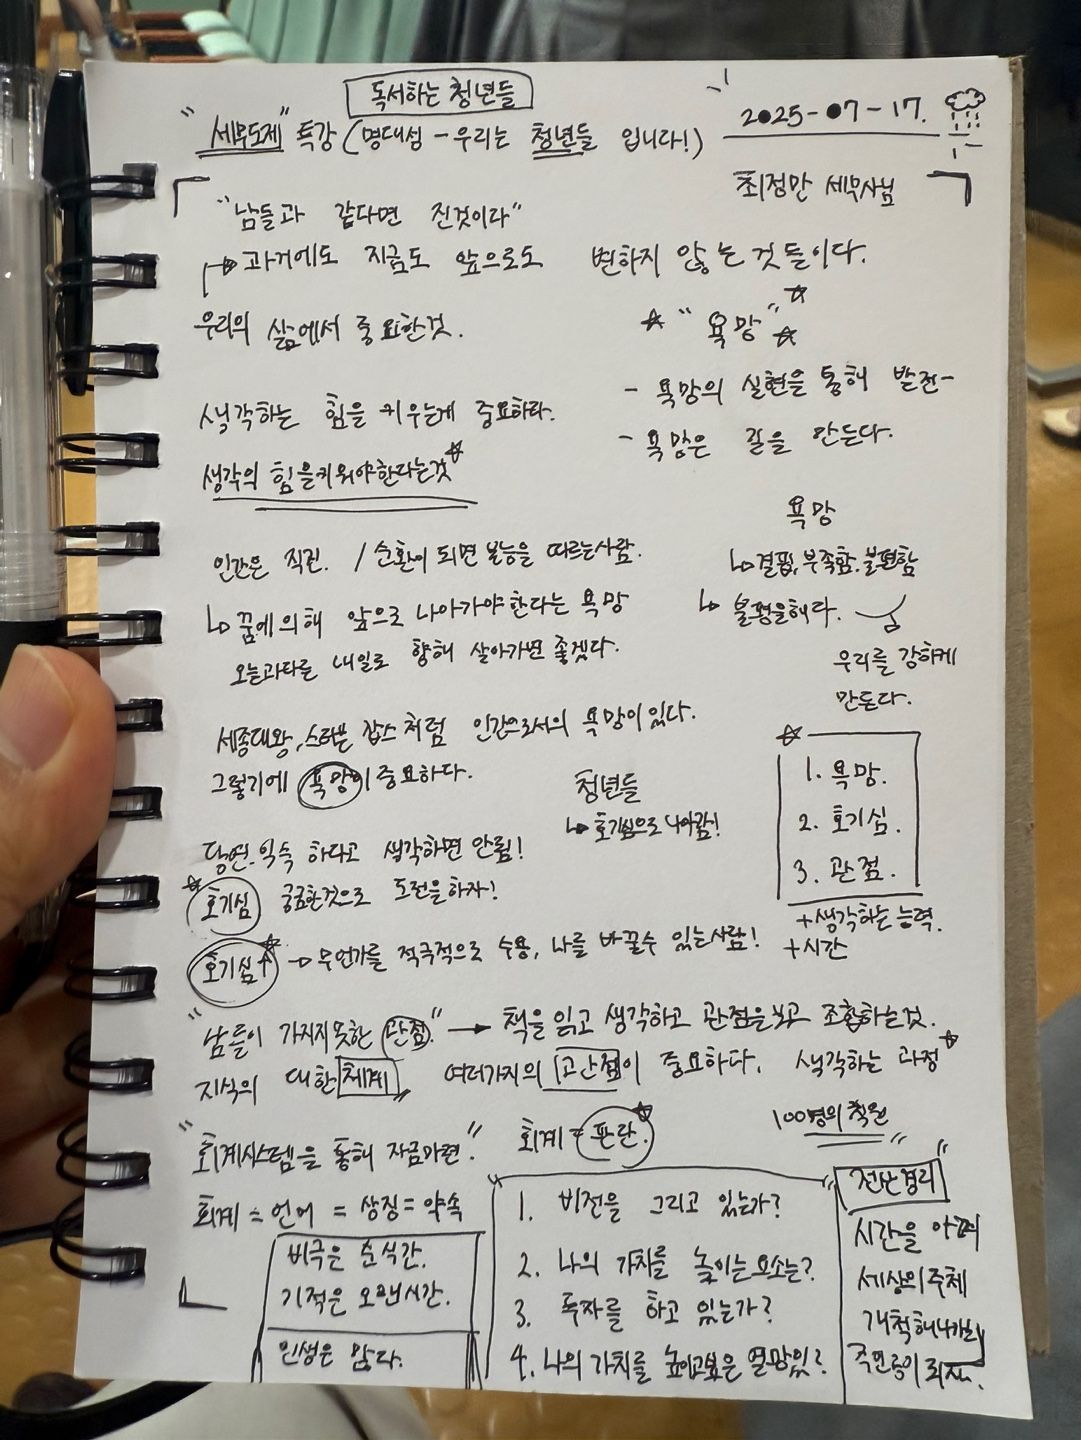 독서하는 청년들
"세무도제" 특강 (명대성 - 우리는 청년들 입니다!)
2025-07-17.
최정만 세무사님
"남들과 같다면 진것이다"
과거에도 지금도 앞으로도 변하지 않는 것들이다.
우리의 삶에서 중요한것.
"욕망"
- 욕망의 실현을 통해 발전-
- 욕망은 길을 만든다.
생각하는 힘을 키우는게 중요하다.
생각의 힘을키워야한다는것
욕망
↳ 결핍, 부족함. 불편함
↳ 불평을해다.
우리를 강하게
만든다.
인간은 직진. / 순환이 되면 본능을 따르는사람.
↳ 꿈에의해 앞으로 나아가야한다는 욕망
오늘과다른 내일로 향해 살아가면 좋겠다.
세종대왕, 스티븐 잡스처럼 인간으로서의 욕망이있다.
그렇기에 욕망이중요하다.
청년들
↳ 호기심으로 나아감!
1. 욕망.
2. 호기심.
3. 관점.
+생각하는 능력.
+시간
당연.익숙 하다고 생각하면 안됨!
호기심 궁금한것으로 도전을하자!
호기심↑ → 무언가를 적극적으로 수용, 나를 바꿀수 있는사람!
"남들이 가지지못한 관점." → 책을 읽고 생각하고 관점을보고 조합하는것.
지식의 대한 체계, 여러가지의 고난점이 중요하다. 생각하는 과정
"회계시스템을 통해 자금마련."
회계 = 판단.
100명의 직원
회계 = 언어 = 상징 = 약속
비극은 순식간.
기적은 오랜시간.
인생은 많다.
1. 비전을 그리고 있는가?
2. 나의 가치를 높이는요소는?
3. 독자를 하고 있는가?
4. 나의 가치를 높이고싶은 열망있?
"전산경리"
시간을 아껴
세상의주체
개척해나가는
주인공이 되자.